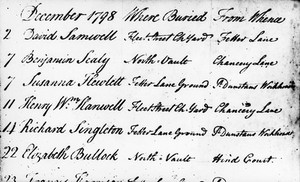 December 1798 Where Buried From Whence
2 David Samwell Fleet Street Ch. Yard Fetter Lane
7 Benjamin Sealy North-Vault Chancery Lane
7 Susanna Hewlett Fetter Lane Ground St Dunstans Workhouse
11 Henry Wm. Hanwell Fleet Street Ch. Yard Chancery Lane
14 Richard Singleton Fetter Lane Ground St Dunstans Workhouse
22 Elizabeth Bullock North-Vault Hind Court.